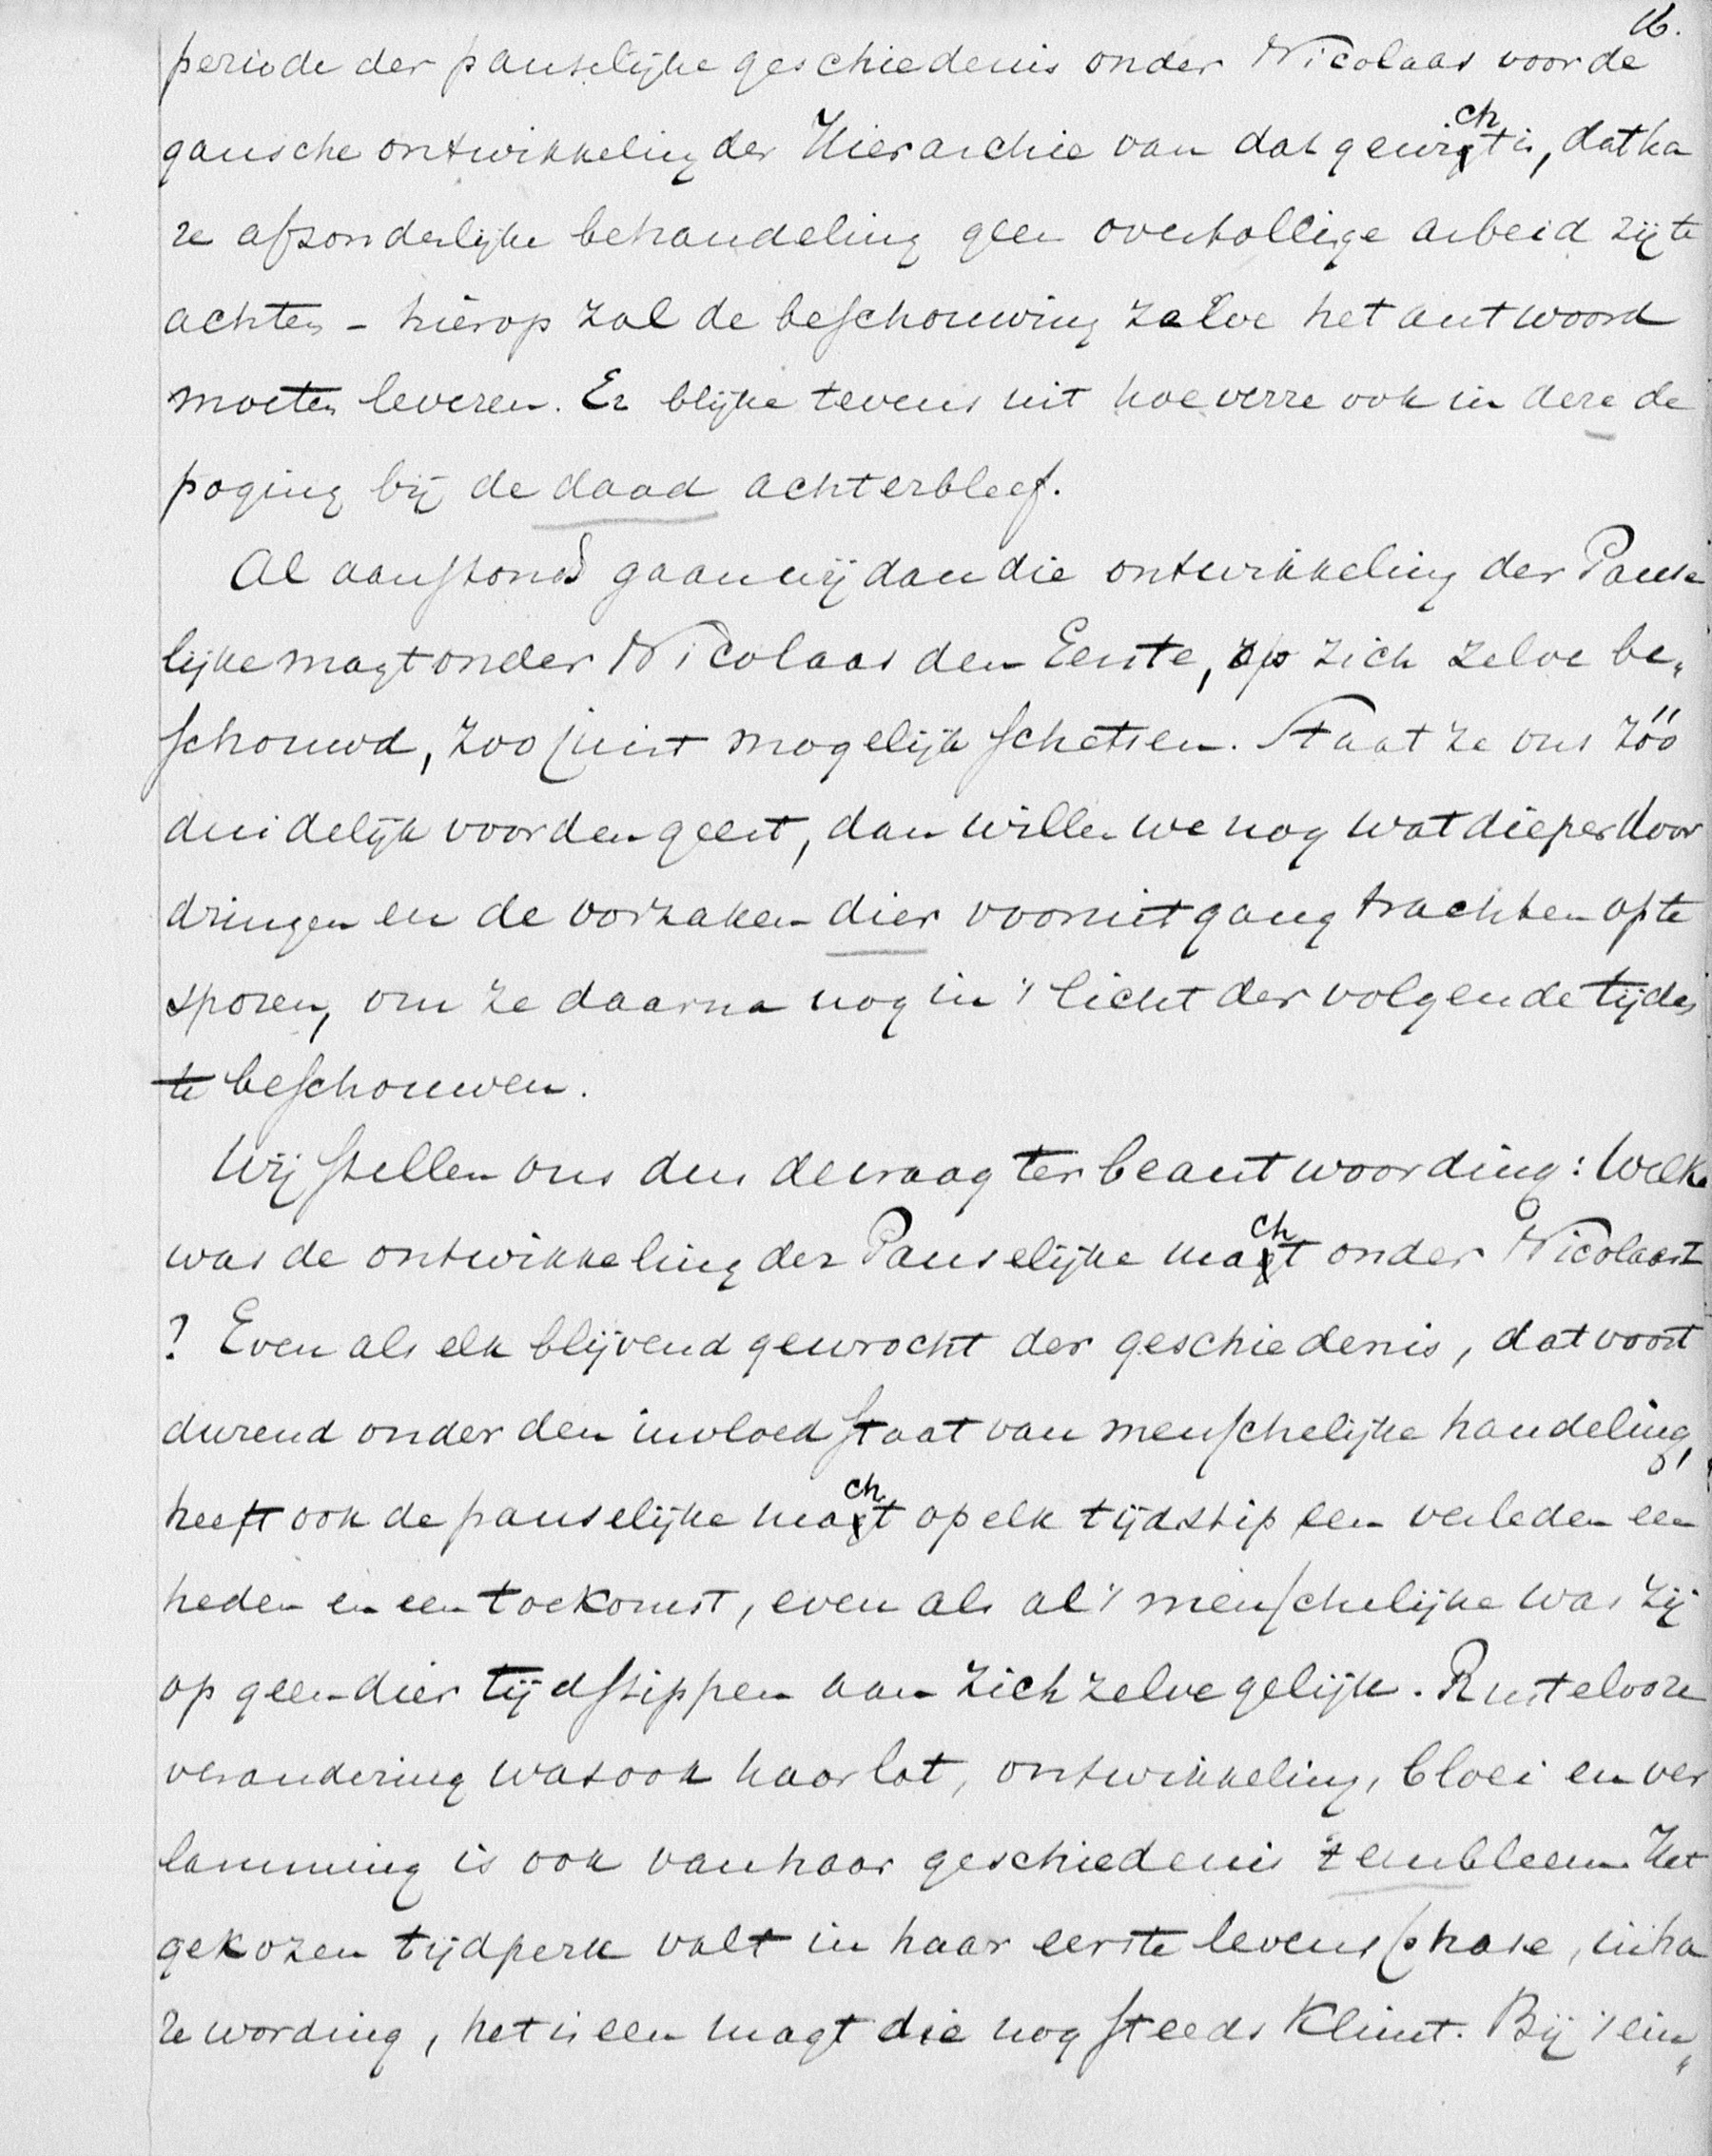 16.
periode der pauselijke geschiedenis onder Nicolaas voor de
gansche ontwikkeling der Hierarchie van dat gewicht is, dat ha
re afzonderlijke behandeling geen overtollige arbeid zij te
achten - hierop zal de beschouwing zelve het antwoord
moeten leveren. Er blijke tevens uit hoeverre ook in deze de
poging bij de daad achterbleef.
Al aanstonds gaan wij dan die ontwikkeling der Pause
lijke magt onder Nicolaas den Eerste, op zich zelve be„
schouwd, zoo juist mogelijk schetsen. Staat ze ons zóó
duidelijk voor den geest, dan willen we nog wat dieper door
dringen en de oorzaken dier vooruitgang trachten op te
sporen, om ze daarna nog in 't licht der volgende tijden
te beschouwen.
Wij stellen ons dus de vraag ter beantwoording: Welke
was de ontwikkeling der Pauselijke macht onder Nicolaas I
? Even als elk blijvend gewrocht der geschiedenis, dat voort
durend onder den invloed staat van menschelijke handeling,
heeft ook de pauselijke macht op elk tijdstip een verleden een
heden en een toekomst, even als al 't menschelijke was zij
op geen dier tijdstippen aan zich zelve gelijk. Rustelooze
verandering was ook haar lot, ontwikkeling, bloei en ver
lamming is ook van haar geschiedenis 't embleem. Het
gekozen tijdperk valt in haar eerste levensphase, in ha
re wording, het is een magt die nog steeds klimt. Bij 't ein„